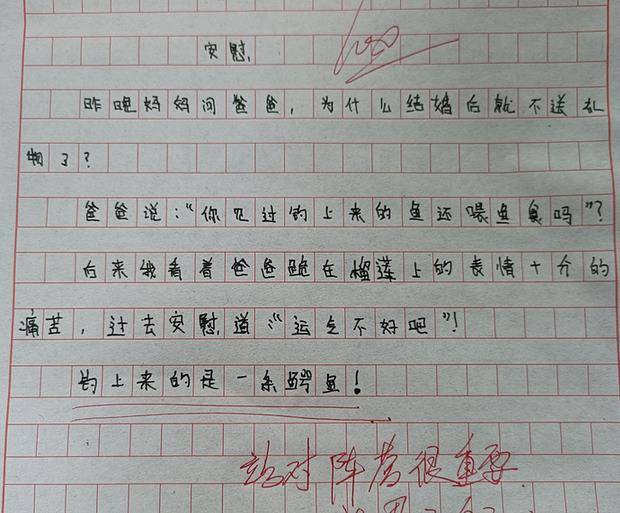 安慰
100
昨晚妈妈问爸爸，为什么结婚后就不送礼
物了？
爸爸说："你见过钓上来的鱼还喂鱼食吗"？
后来我看着爸爸跪在榴莲上的表情十分的
痛苦，过去安慰道："运气不好吧"！
钓上来的是一条鳄鱼！
站对阵营很重要